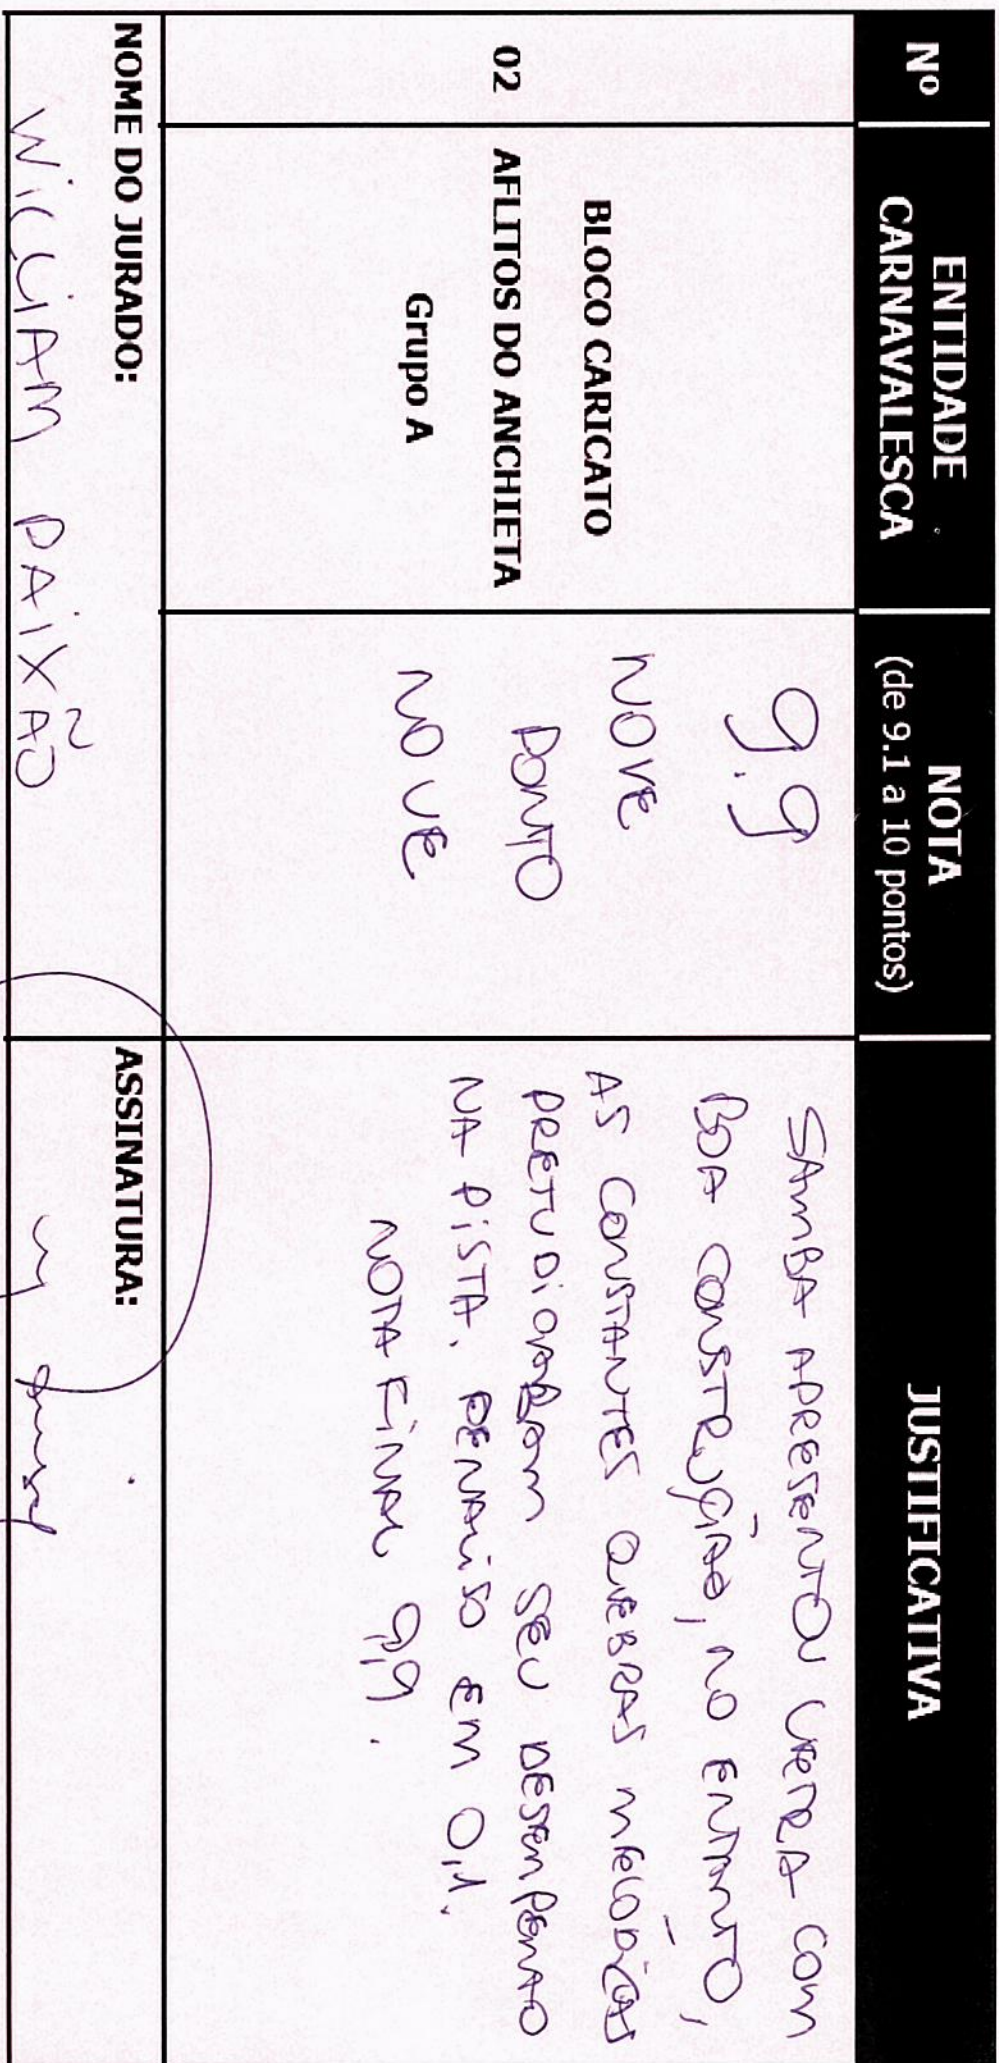 Nº
ENTIDADE
CARNAVALESCA
NOTA
(de 9.1 a 10 pontos)
JUSTIFICATIVA
02
BLOCO CARICATO
AFLITOS DO ANCHIETA
Grupo A
9.9
NOVE
PONTO
NOVE
SAMBA APRESENTOU LETRA COM
BOA CONSTRUÇÃO, NO ENTANTO,
AS CONSTANTES QUEBRAS MELÓDICAS
PREJUDICARAM SEU DESEMPENHO
NA PISTA. PENALISO EM 0,1.
NOTA FINAL 9,9.
NOME DO JURADO:
WILLIAM PAIXÃO
ASSINATURA: